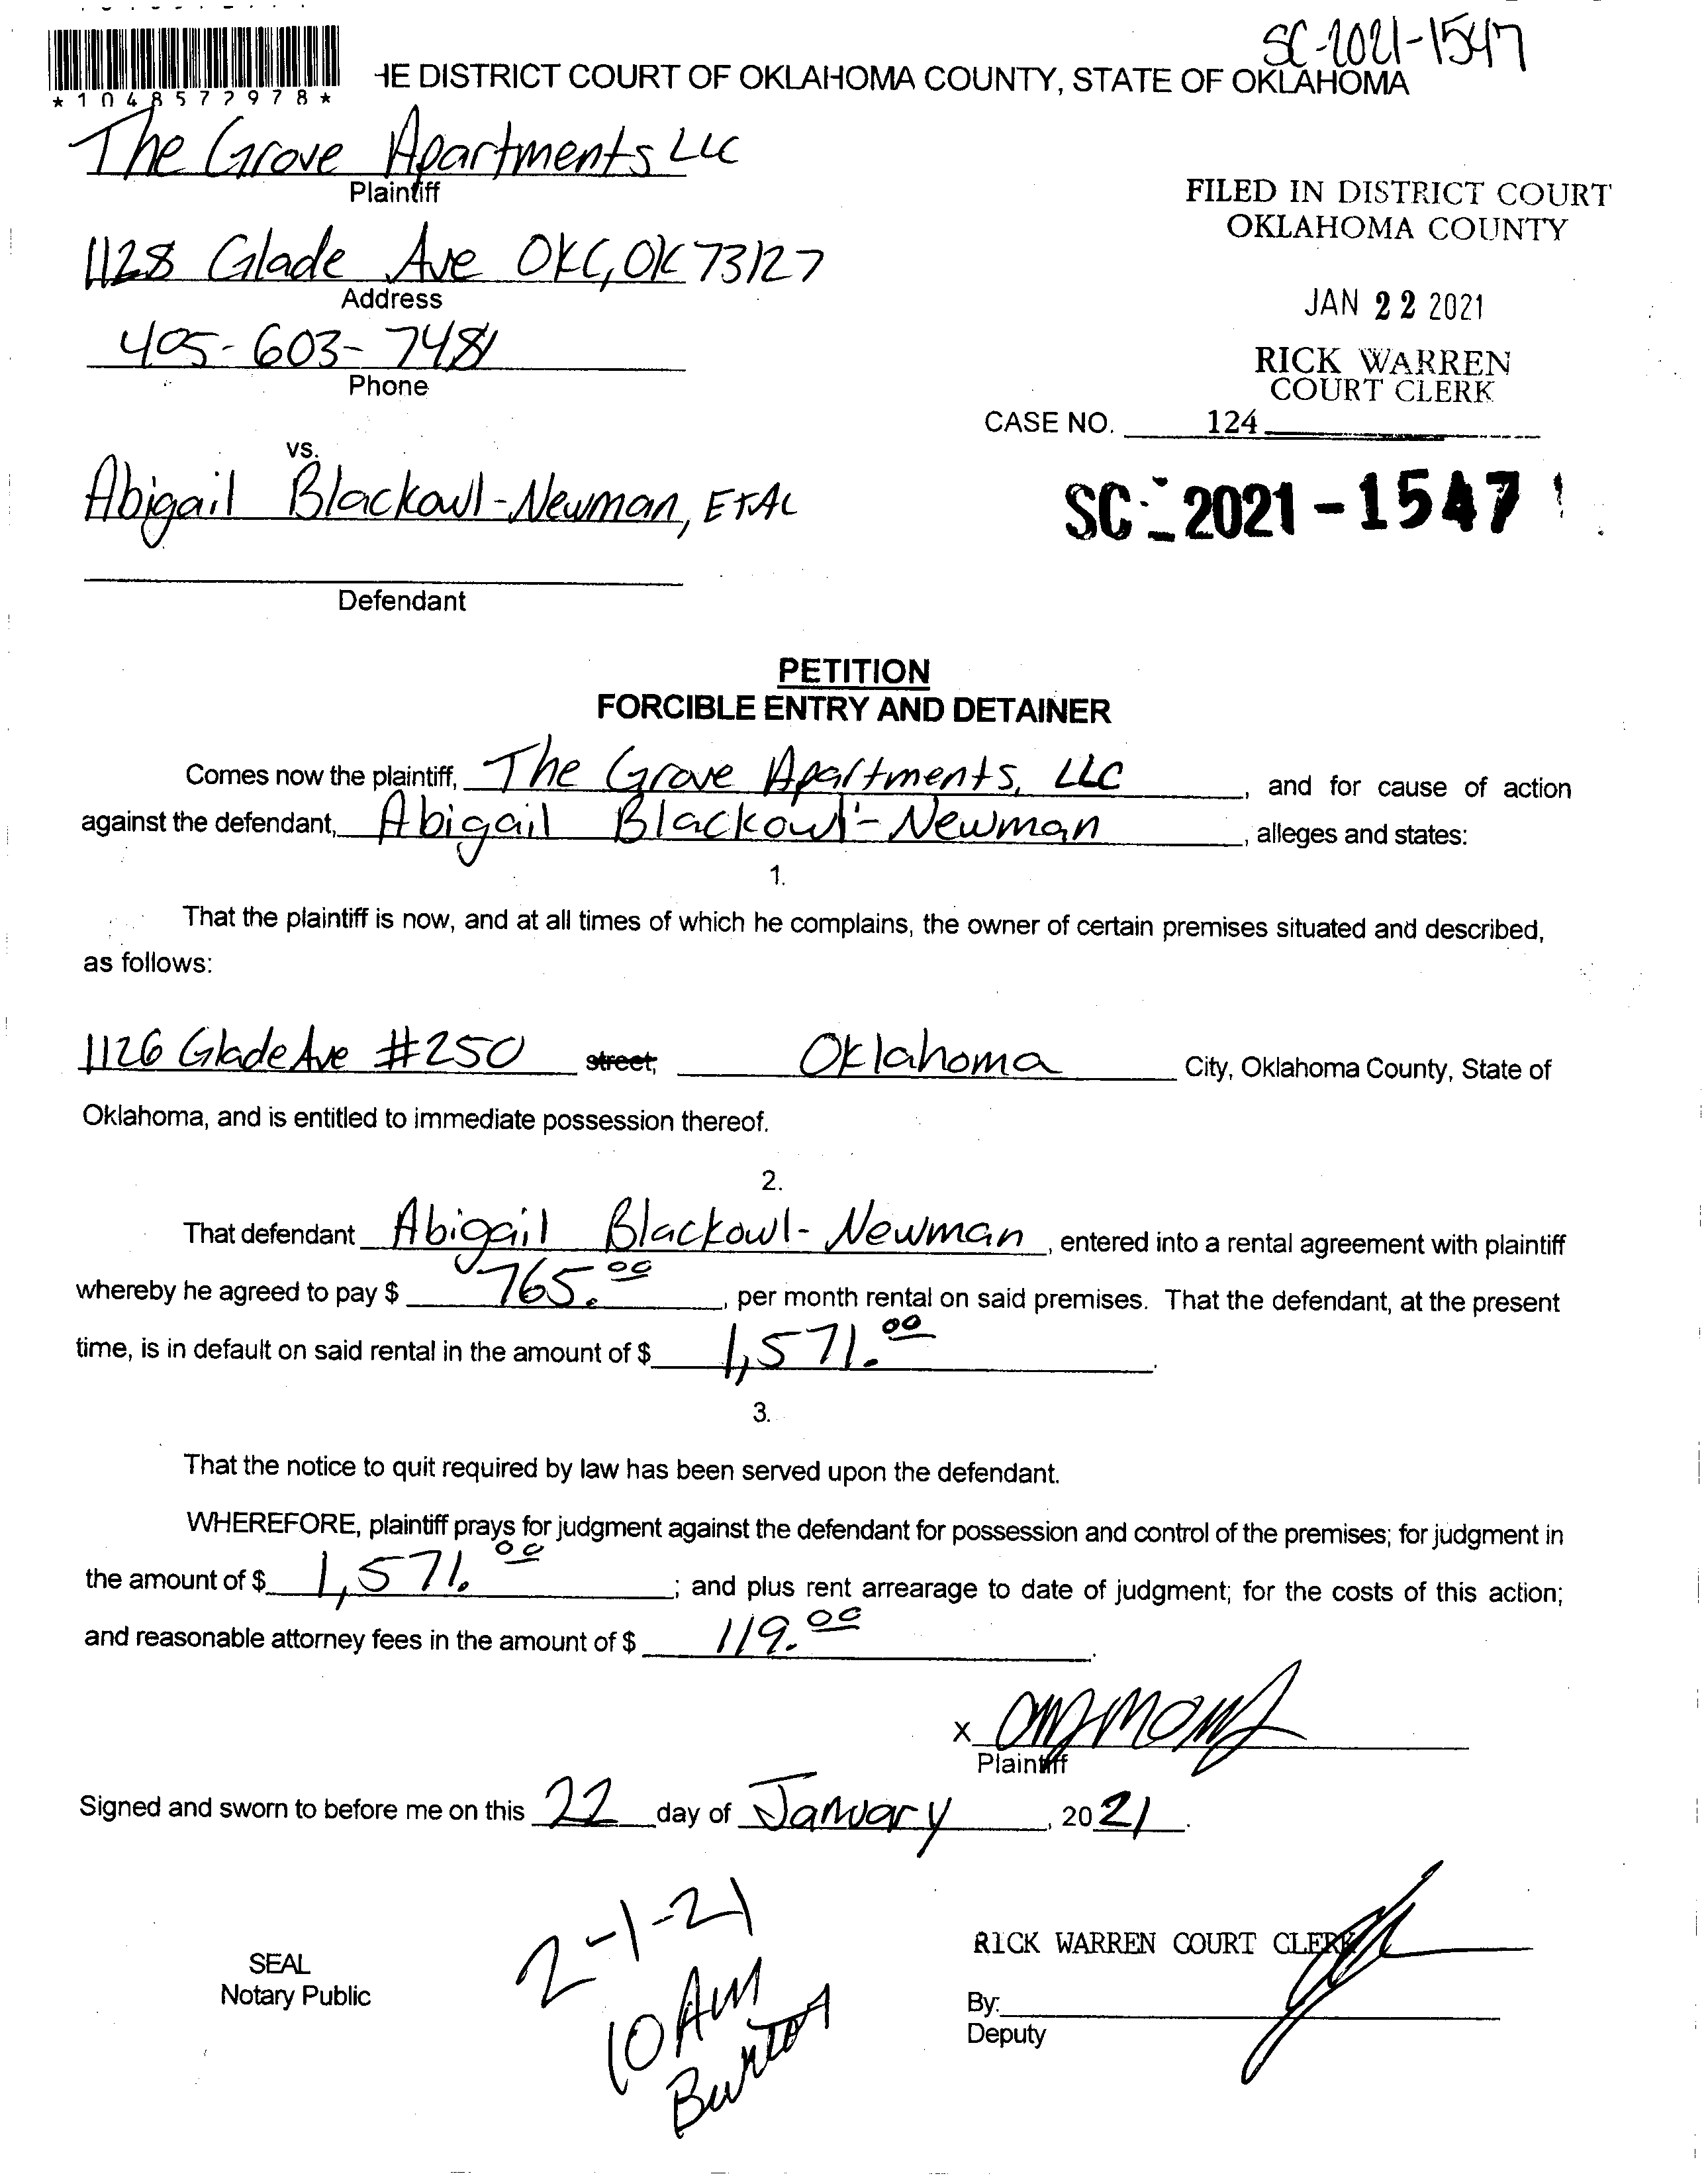 SC-2021-1547
*1048572978*
HE DISTRICT COURT OF OKLAHOMA COUNTY, STATE OF OKLAHOMA
The Grove Apartments LLC
Plaintiff
1128 Glade Ave OKC, OK 73127
Address
405-603-7481
Phone
FILED IN DISTRICT COURT
OKLAHOMA COUNTY
JAN 22 2021
RICK WARREN
COURT CLERK
CASE NO. 124
SC-2021-1547
vs.
Abigail Blackowl-Newman, ETAL
Defendant
PETITION
FORCIBLE ENTRY AND DETAINER
Comes now the plaintiff, The Grove Apartments, LLC, and for cause of action
against the defendant, Abigail Blackowl-Newman, alleges and states:
1.
That the plaintiff is now, and at all times of which he complains, the owner of certain premises situated and described,
as follows:
1126 Glade Ave #250 street, Oklahoma City, Oklahoma County, State of
Oklahoma, and is entitled to immediate possession thereof.
2.
That defendant Abigail Blackowl-Newman, entered into a rental agreement with plaintiff
whereby he agreed to pay $ 765.00, per month rental on said premises. That the defendant, at the present
time, is in default on said rental in the amount of $ 1,571.00.
3.
That the notice to quit required by law has been served upon the defendant.
WHEREFORE, plaintiff prays for judgment against the defendant for possession and control of the premises; for judgment in
the amount of $ 1,571.00; and plus rent arrearage to date of judgment; for the costs of this action;
and reasonable attorney fees in the amount of $ 119.00.
X
Plaintiff
Signed and sworn to before me on this 22 day of January, 2021.
2-1-21
10 AM
Burton
SEAL
Notary Public
RICK WARREN COURT CLERK
By:
Deputy